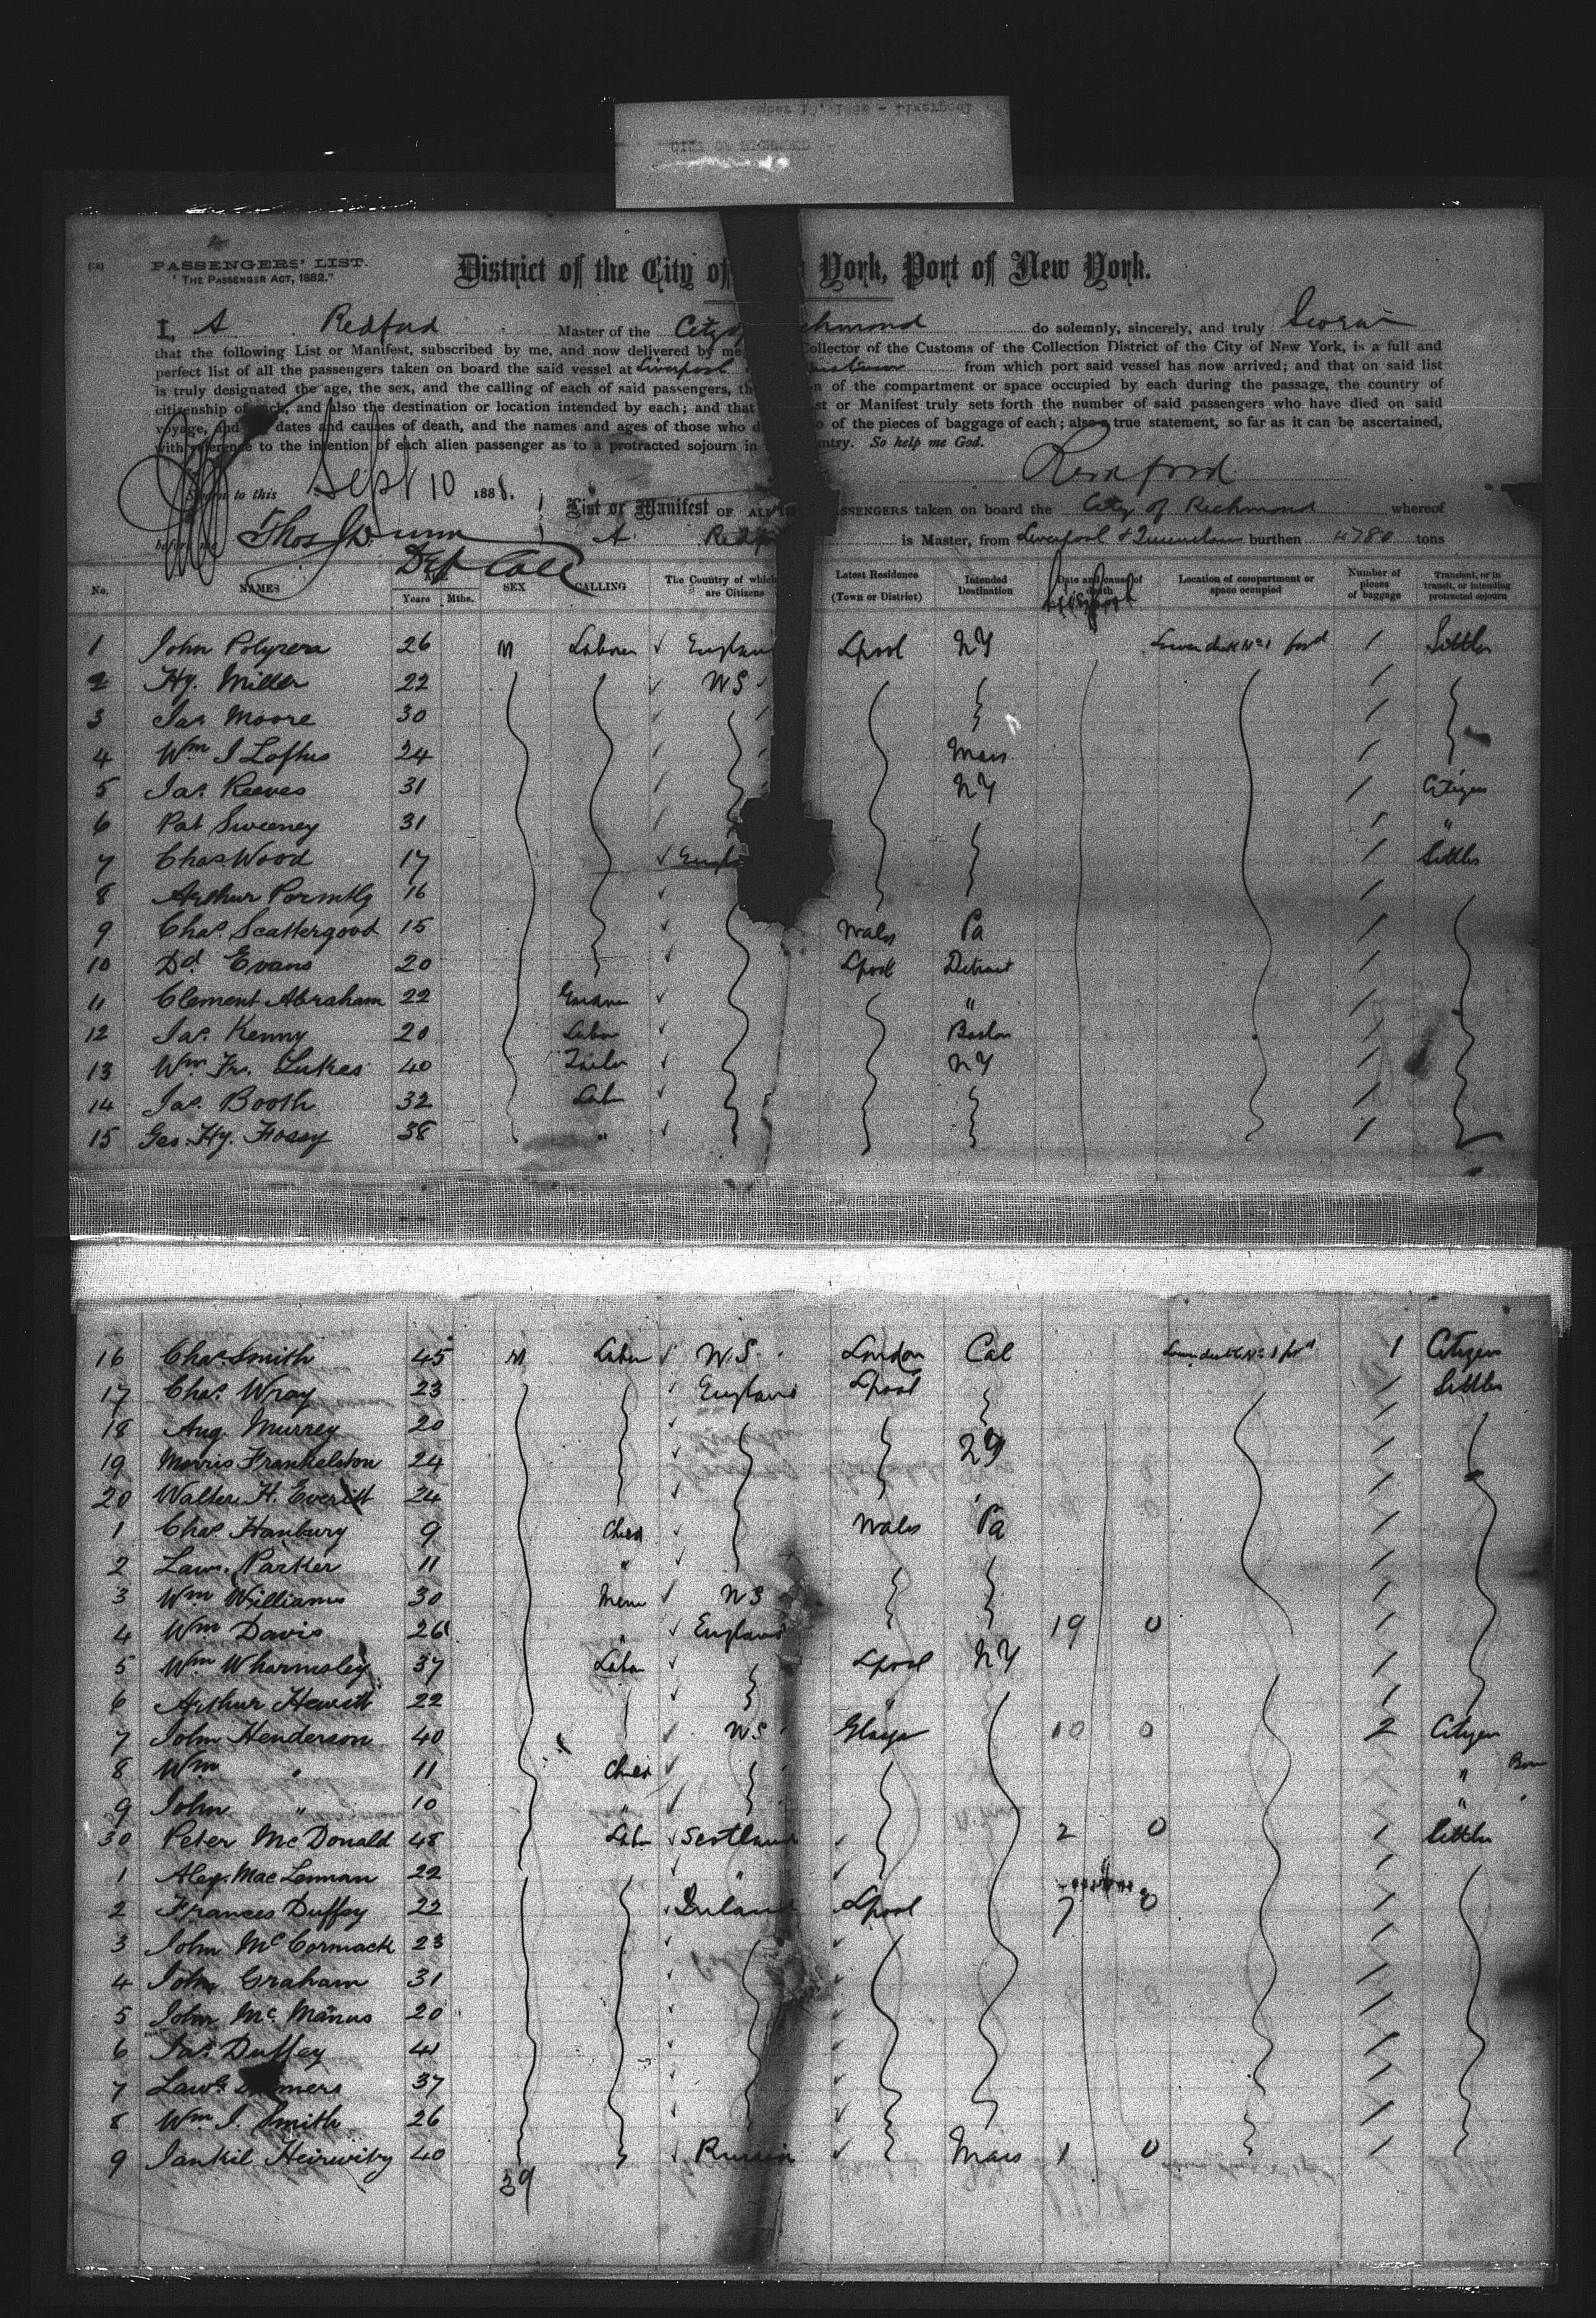 CITY OF RICHMOND
PASSENGERS' LIST.
"THE PASSENGER ACT, 1882."
District of the City of York, Port of New York.
I, A Redford Master of the City of chmond do solemnly, sincerely, and truly Swear
that the following List or Manifest, subscribed by me, and now delivered by me Collector of the Customs of the Collection District of the City of New York, is a full and
perfect list of all the passengers taken on board the said vessel at Liverpool from which port said vessel has now arrived; and that on said list
is truly designated the age, the sex, and the calling of each of said passengers, th n of the compartment or space occupied by each during the passage, the country of
citizenship of each, and also the destination or location intended by each; and that st or Manifest truly sets forth the number of said passengers who have died on said
voyage, and dates and causes of death, and the names and ages of those who d o of the pieces of baggage of each; also a true statement, so far as it can be ascertained,
with reference to the intention of each alien passenger as to a protracted sojourn in ntry. So help me God.
Redford
Sworn to this Sept 10 1888.
before me Thos Dunn
Dep Coll
List or Manifest OF ALL SSENGERS taken on board the City of Richmond whereof
A Redfo is Master, from Liverpool & Queenstown burthen 4780 tons
No. NAMES Years Mths. SEX CALLING The Country of which are Citizens Latest Residence (Town or District) Intended Destination Date and cause of death Location of compartment or space occupied Number of pieces of baggage Transient, or in transit, or intending protracted sojourn
1 John Polyrera 26 M Labour England Lpool NY Lower deck No 1 ford 1 Settler
2 Hy. Miller 22 WS 1
3 Jas Moore 30 1
4 Wm J Loftus 24 Mass 1
5 Jas. Reeves 31 NY 1 Citizen
6 Pat Sweeney 31 1 "
7 Chas Wood 17 Engla 1 Settler
8 Arthur 16 1
9 Chas. Scattergood 15 Wales Pa 1
10 Dd. Evans 20 Lpool Detroit 1
11 Clement Abraham 22 " 1
12 Jas. Kenny 20 Labr Boston 1
13 Wm Fr. Lukes 40 Tailor NY 1
14 Jas. Booth 32 Labr 1
15 Geo. Hy. Hosey 38 " 1
16 Chas Smith 45 M Labr W.S. London Cal Lower deck No 1 ford 1 Citizen
17 Chas. Wray 23 England Lpool 1 Settler
18 Aug. Murrey 20 1
19 Morris Frankelston 24 NY 1
20 Walter H. Everitt 24 1
1 Chas Hanbury 9 Child Wales Pa 1
2 Lawr. Parker 11 " 1
3 Wm Williams 30 Miner WS 1
4 Wm Davis 26 " England 19 0 1
5 Wm Wharmsley 37 Labr Lpool NY 1
6 Arthur Hewitt 22 " 1
7 John Henderson 40 WS Glasgo 10 0 2 Citizen
8 Wm " 11 Child "
9 John " 10 " "
30 Peter McDonald 48 Labr Scotland 2 0 1 Settler
1 Alex. MacLennan 22 " 1
2 Frances Duffey 22 Ireland Lpool 7 0 1
3 John McCormack 23 1
4 John Graham 31 1
5 John McManus 20 1
6 Jas. Duffey 41 1
7 Lawr. mers 37 1
8 Wm J. Smith 26 1
9 Jankil Heirwitz 40 Russia Mass 1 0 1
39